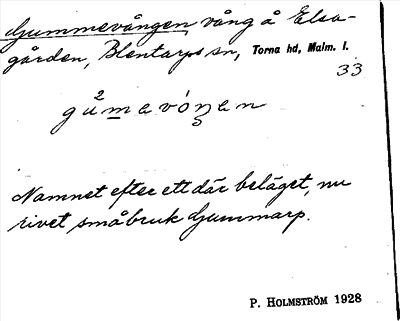 Gummevången, vång å Elsa-
gården, Blentarps sn, Torna hd, Malm. l.
33
gu̇²mavóŋen
Namnet efter ett där beläget, nu
rivet småbruk Gummarp.
P. HOLMSTRÖM 1928